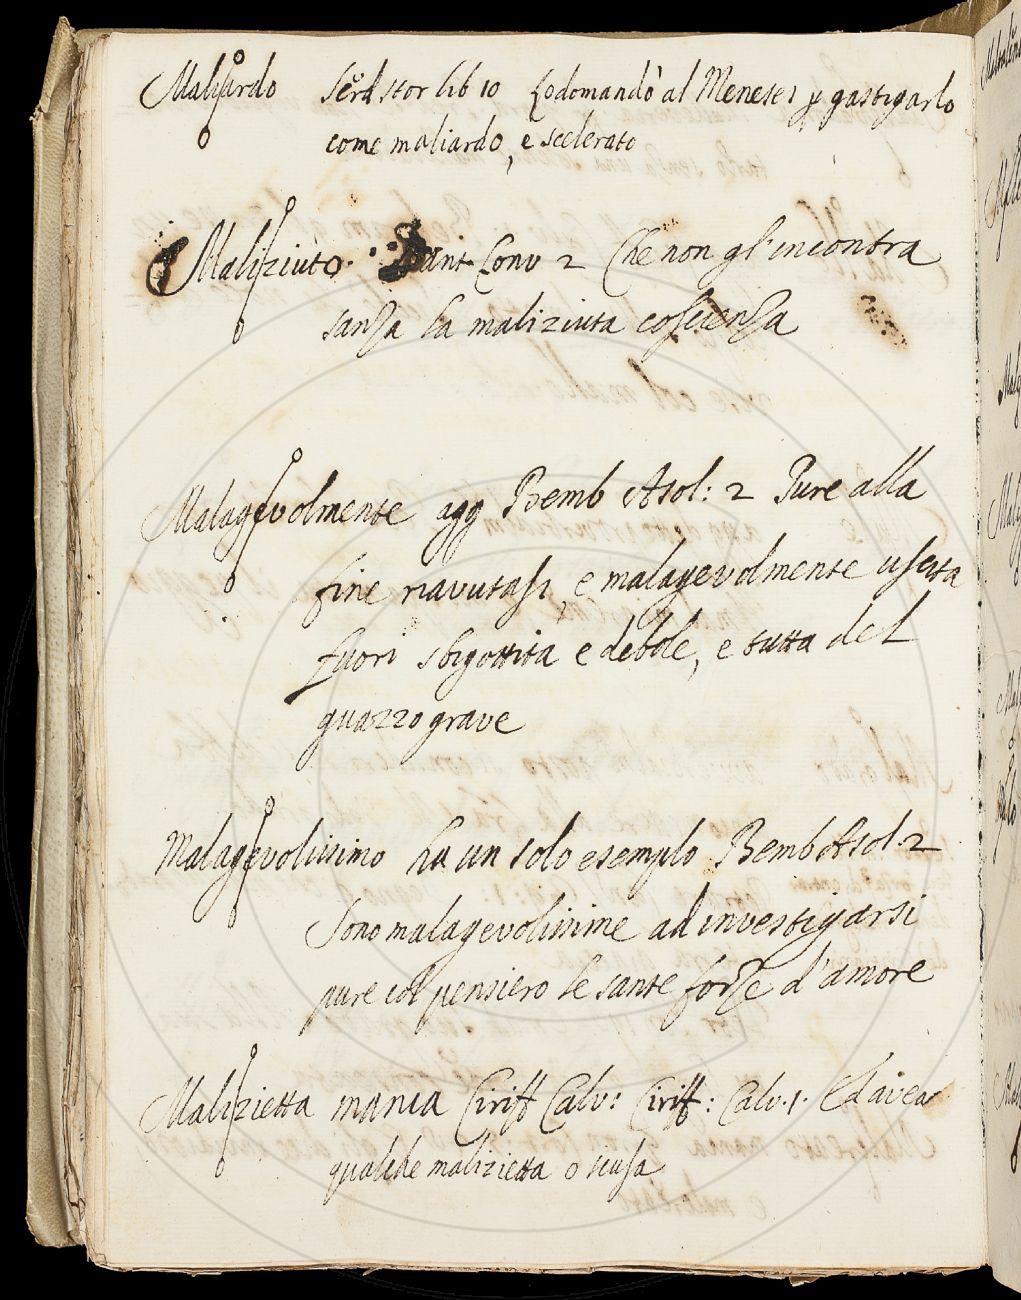 Maliardo Serd stor lib 10 Lo domandò al Menese 1 p gastigarlo
come maliardo, e scelerato
Maliziuto Sant Conv 2 Che non gl'incontra
sanza la maliziuta coscienza
Malagevolmente agg Bemb Asol: 2 Pure alla
fine riavutasi, e malagevolmente uscita
fuori sbigottita e debole, e tutta del
guazzo grave
Malagevolissimo ha un solo esemplo Bemb Asol 2
Sono malagevolissime ad investigarsi
pure col pensiero le sante forze d'amore
Malizietta manca Ciriff Calv: Ciriff: Calv. 1. Ed avea
qualche malizietta o scusa